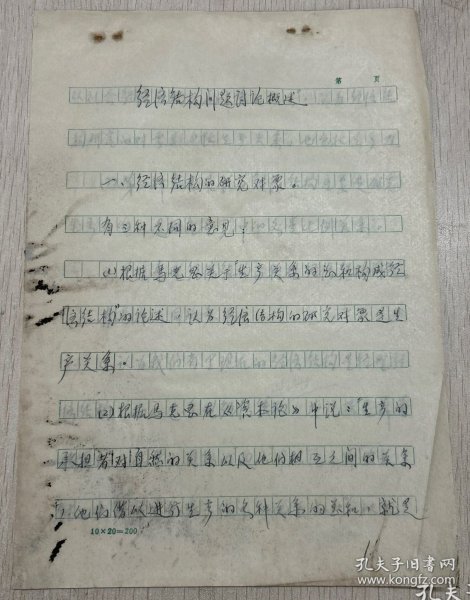 第 页
经济结构问题讨论概述
一、经济结构的研究对象。
有三种不同的意见：
(1)根据马克思关于“生产关系的总和构成经
济结构”的论述，认为经济结构的研究对象是生
产关系。
(2)根据马克思在《资本论》中说：“生产的
承担者对自然的关系以及他们相互之间的关系
，他们借以进行生产的各种关系的总和，就是
10×20=200
孔夫子旧书网
www.kongfz.com
孔夫